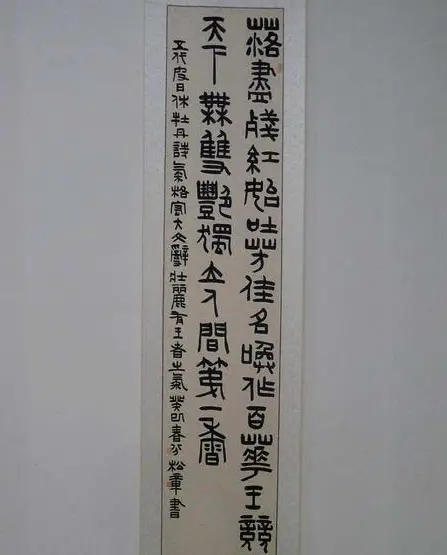 落盡殘紅始吐芳佳名喚作百華王競
天下無雙豔獨立人間第一香
五代皮日休牡丹詩氣格宏大文辭壯麗有王者之氣癸卯春分松章書